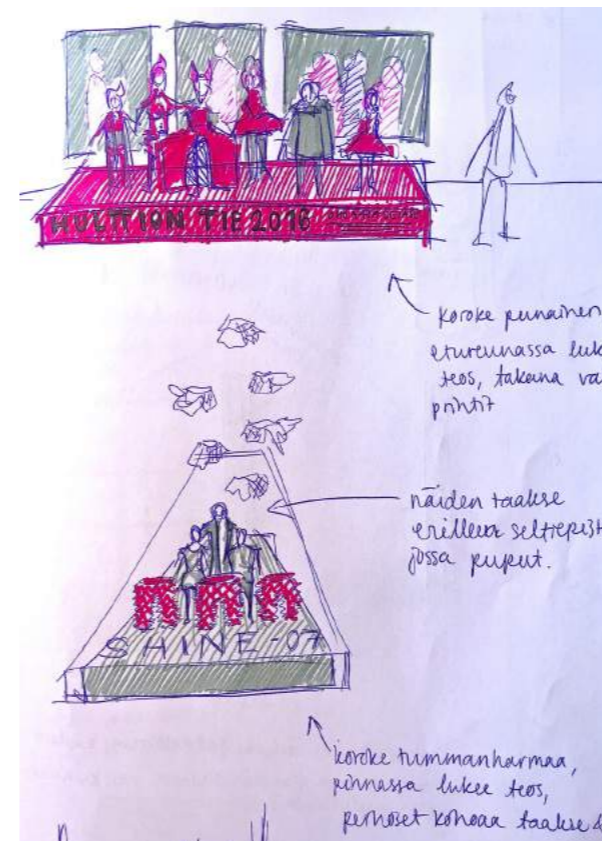 HULTTION TIE 2016
koroke punainen
etureunassa luk
teos, takana va
printit
näiden taakse
jossa puput.
SHINE -07
koroke tummanharmaa,
pinnassa lukee teos,
perhoset kohoaa taakse &